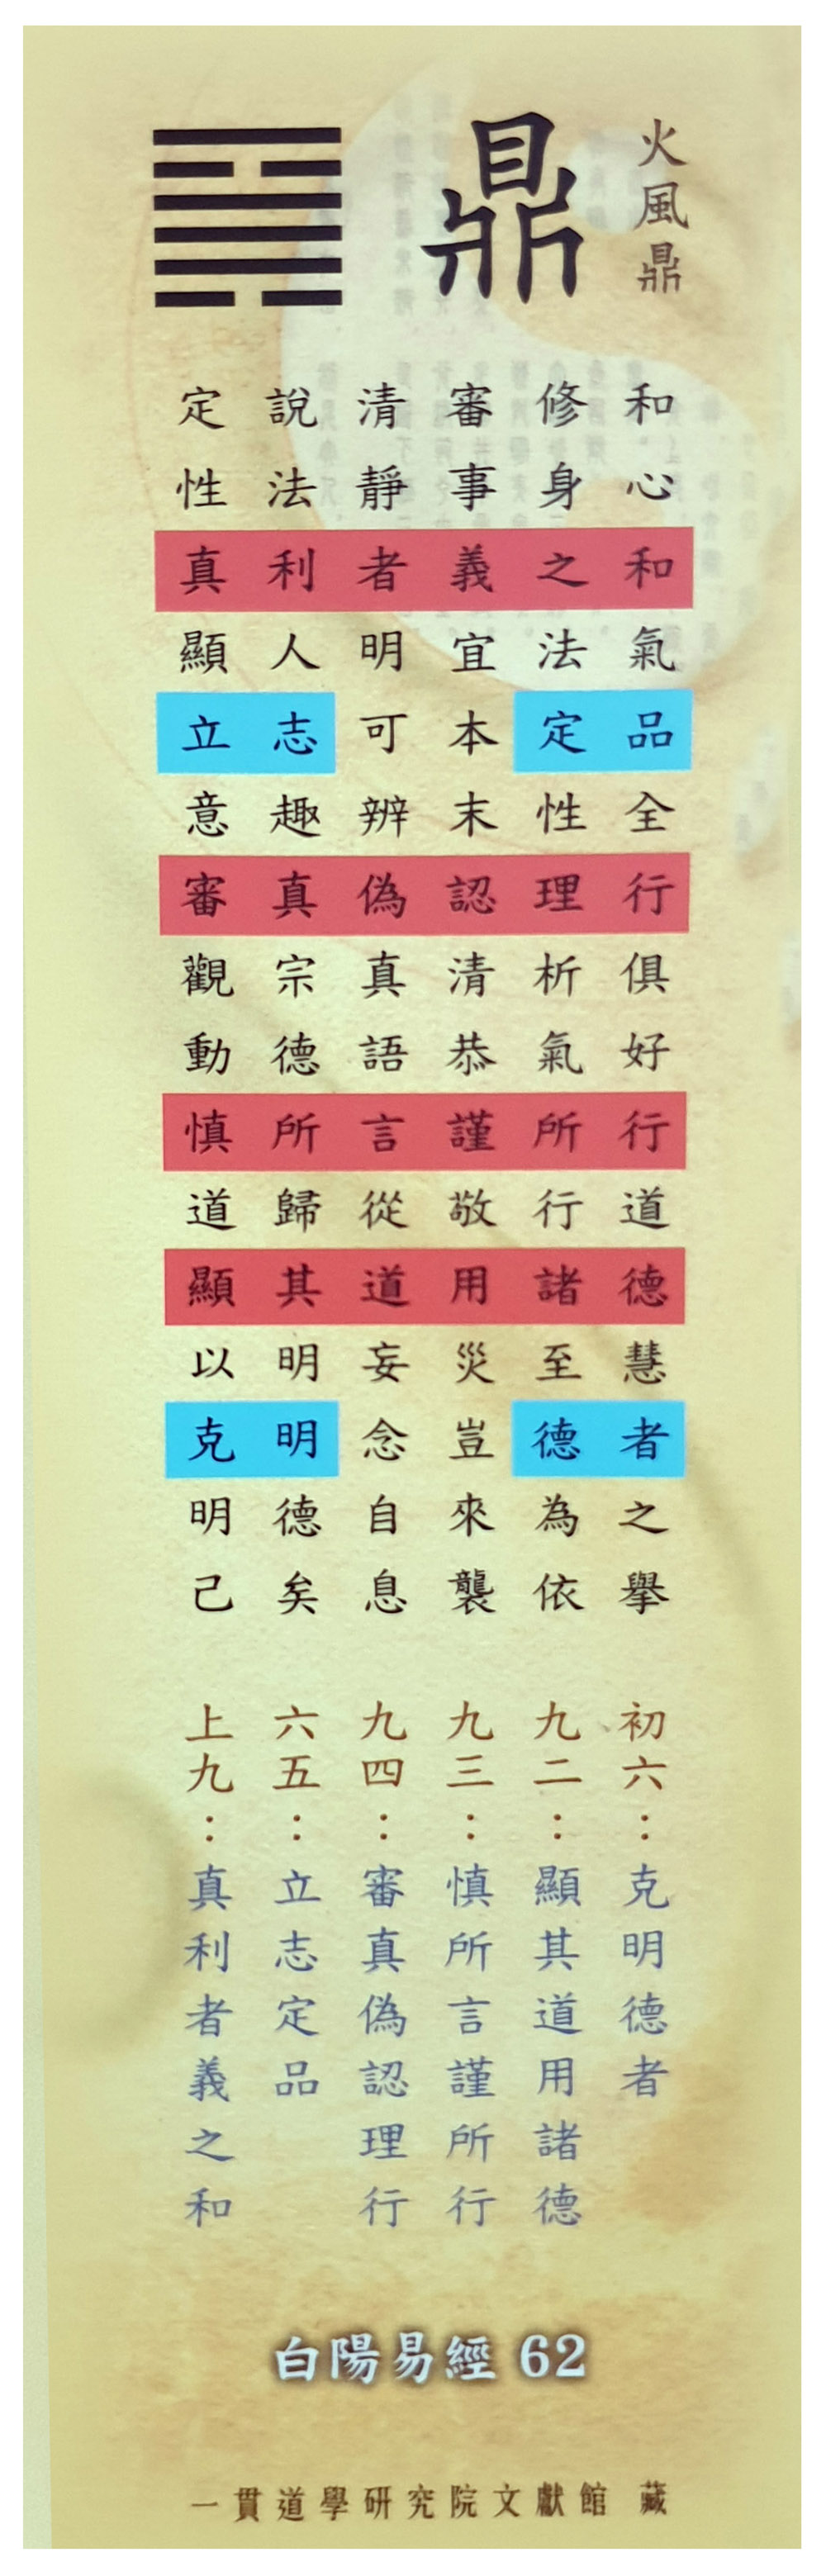 火風鼎
鼎
和心和氣品全行俱好行道德慧者之舉
修身之法定性理析氣所行諸至德為依
審事義宜本末認清恭謹敬用災豈來襲
清靜者明可辨偽真語言從道妄念自息
說法利人志趣真宗德所歸其明明德矣
定性真顯立意審觀動慎道顯以克明己
初六：克明德者
九二：顯其道用諸德
九三：慎所言謹所行
九四：審真偽認理行
六五：立志定品
上九：真利者義之和
白陽易經 62
一貫道學研究院文獻館 藏